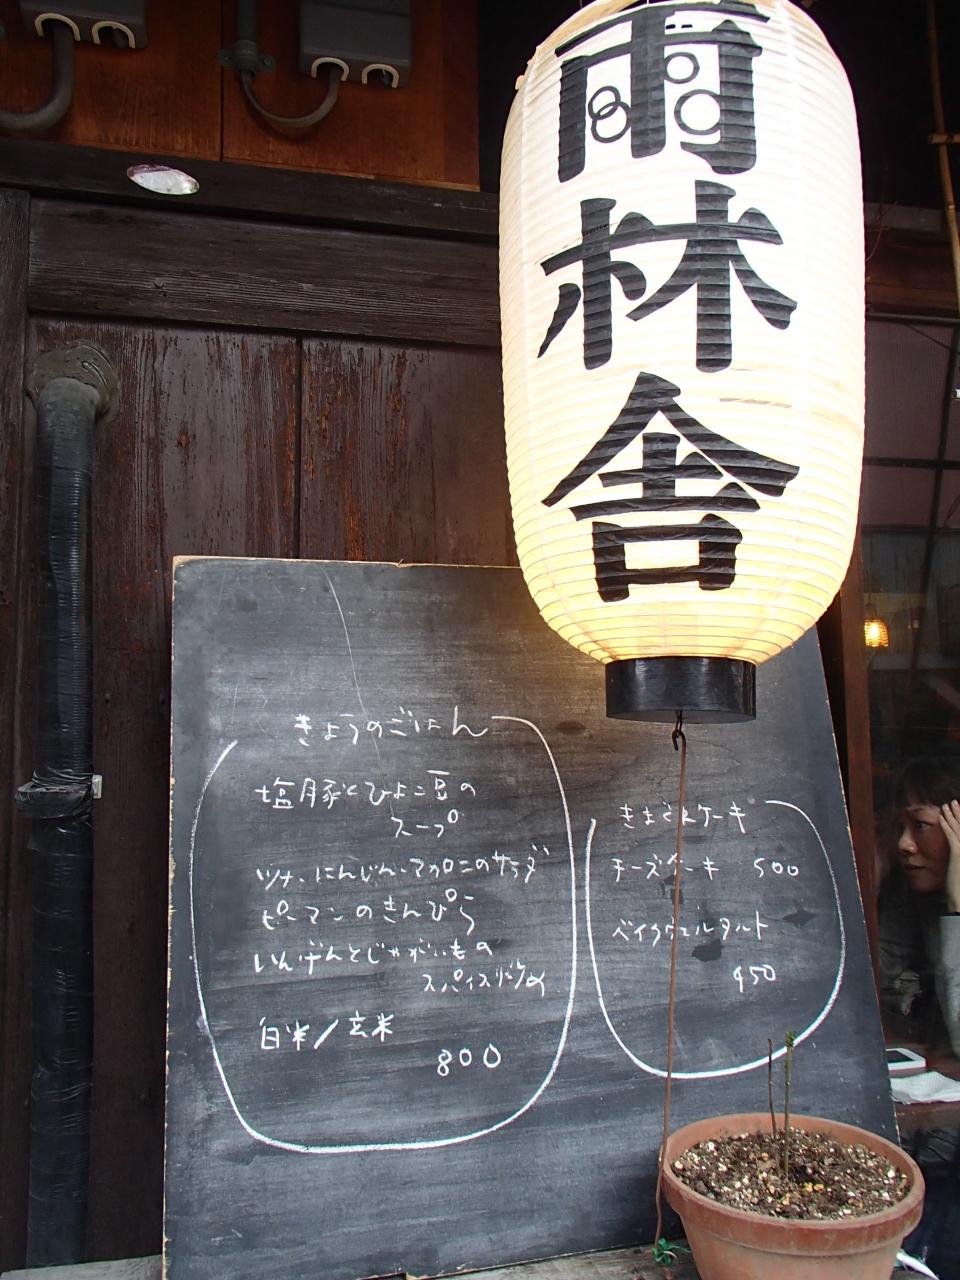 雨林舎
きょうのごはん
塩豚とひよこ豆の
スープ
ツナ、にんじん、マカロニのサラダ
ピーマンのきんぴら
いんげんとじゃがいもの
スパイス炒め
白米/玄米
800
きまぐれケーキ
チーズケーキ 500
ベイクウェルタルト
450